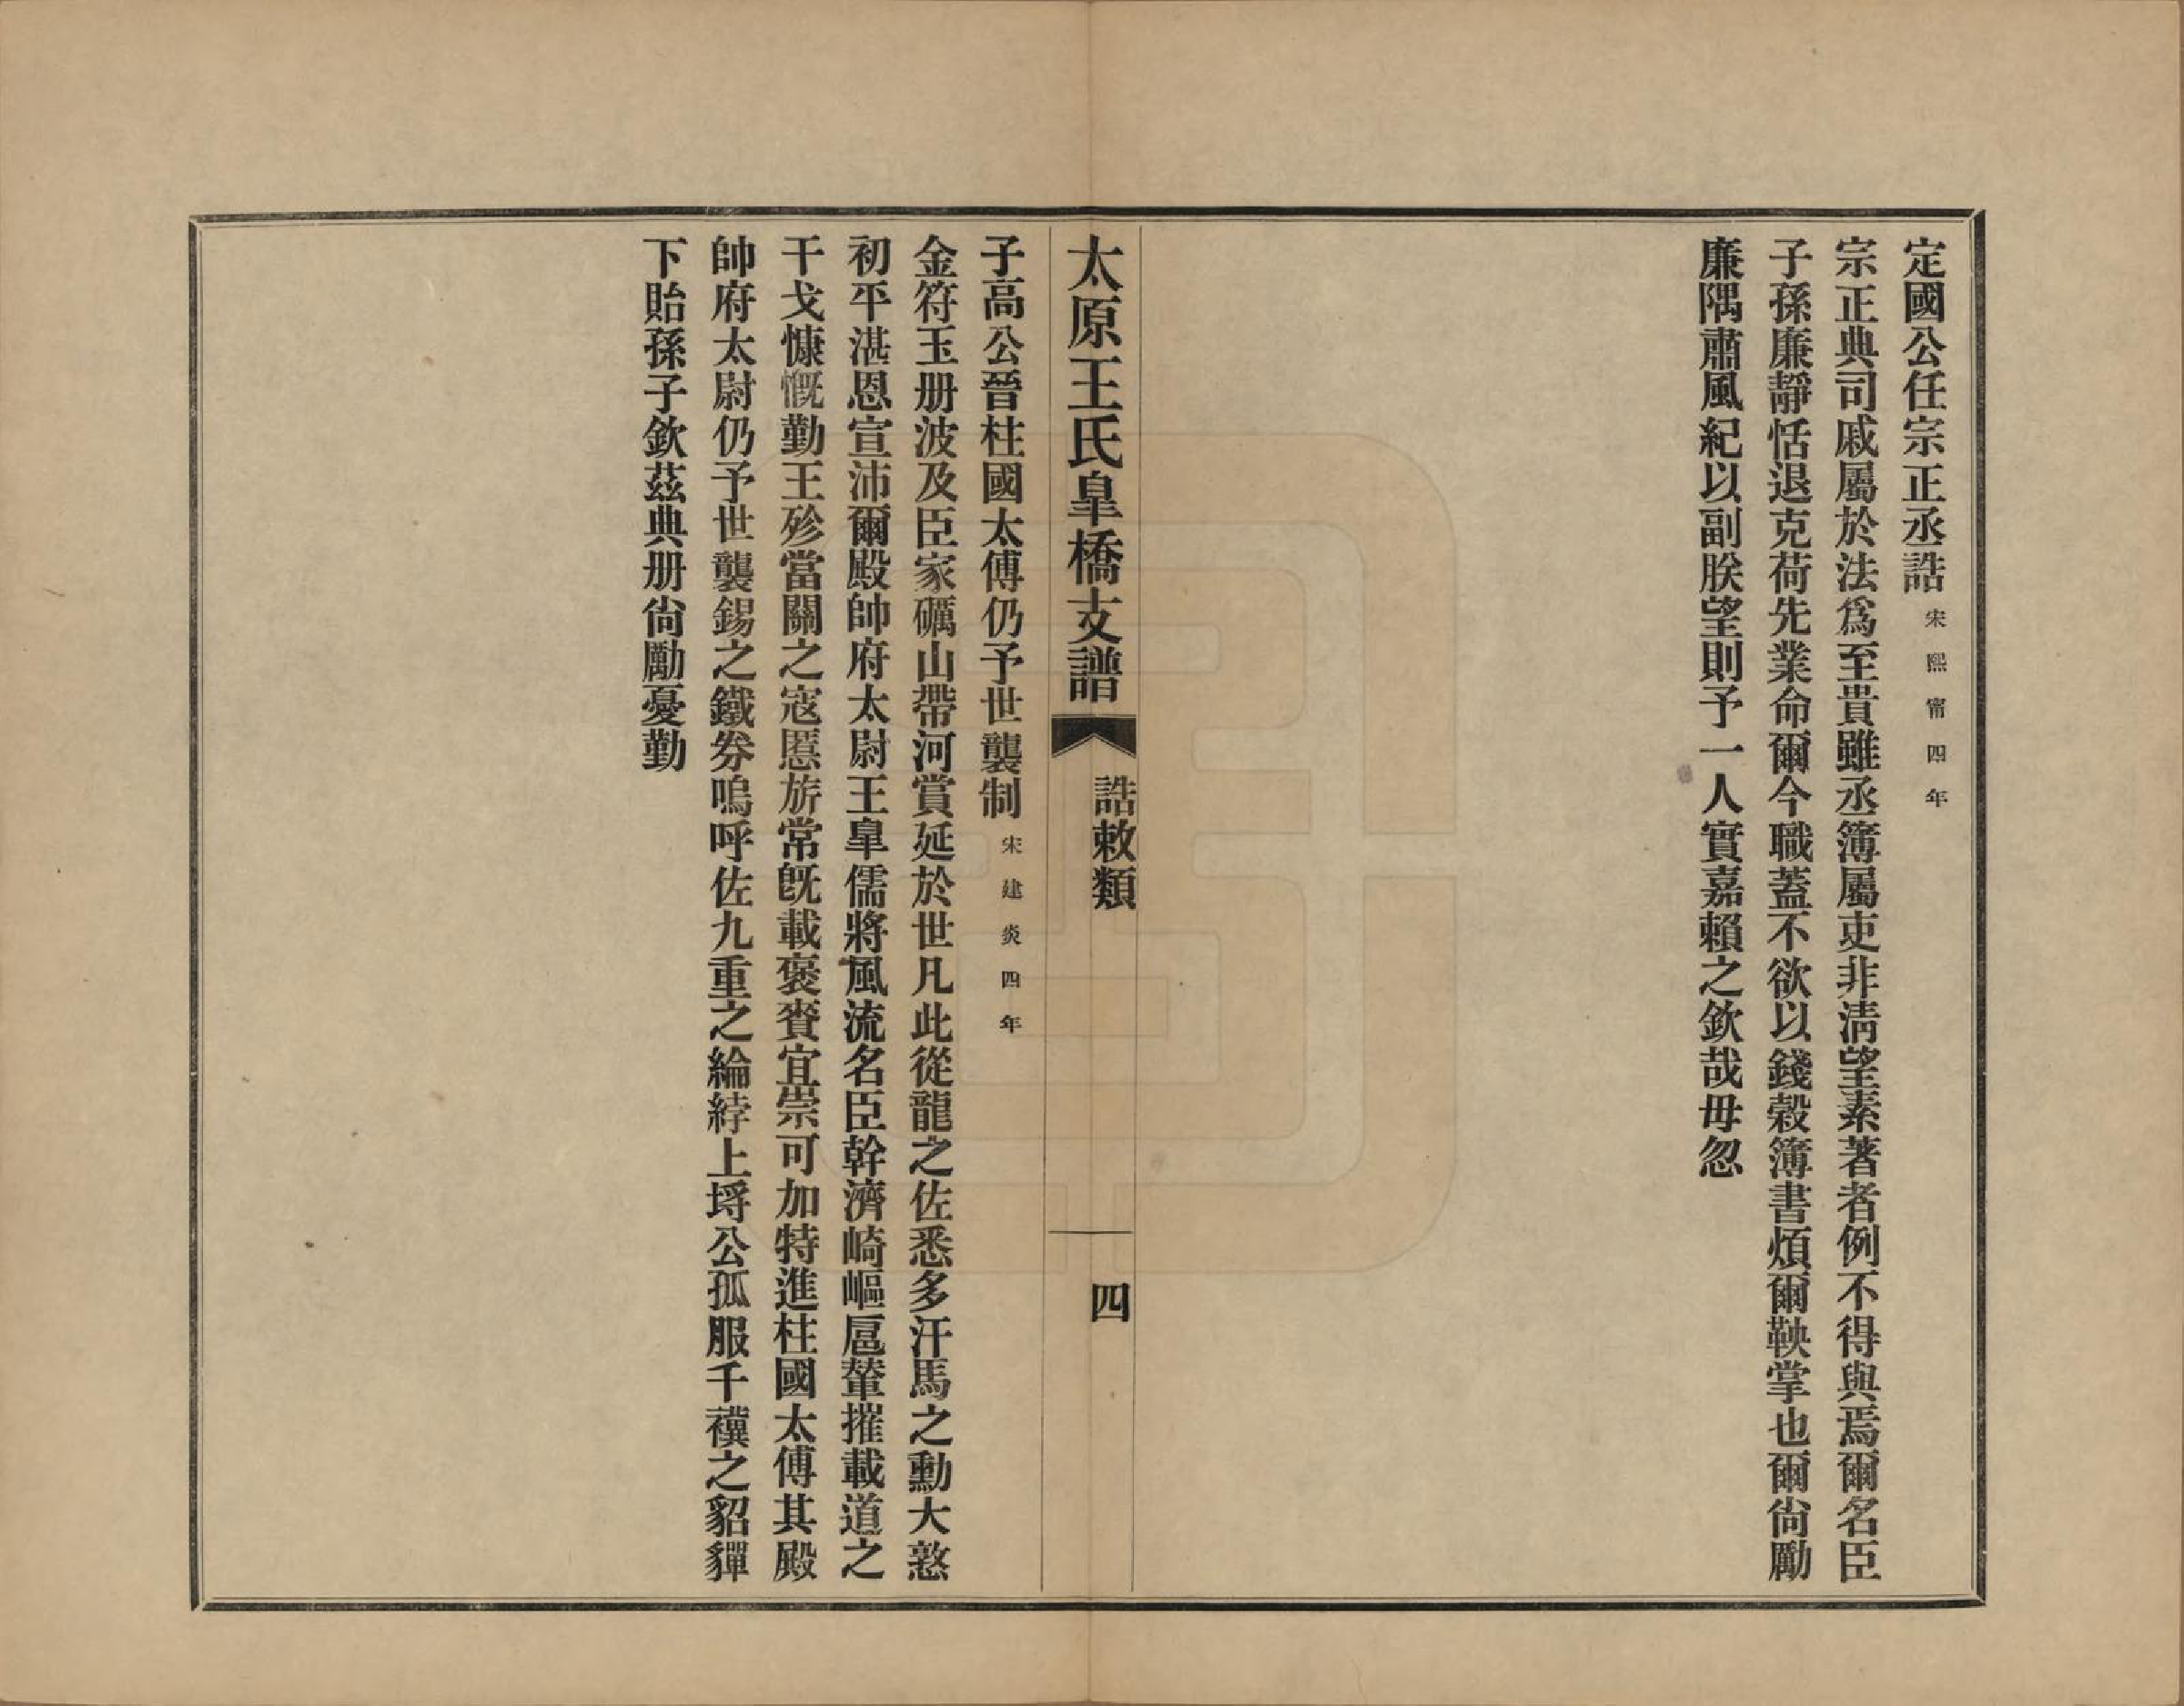 定國公任宗正丞誥宋熙甯四年
宗正典司戚屬於法爲至貴雖丞簿屬吏非淸望素著者例不得與焉爾名臣
子孫廉靜恬退克荷先業命爾今職蓋不欲以錢穀簿書煩爾鞅掌也爾尙勵
廉隅肅風紀以副朕望則予一人實嘉賴之欽哉毋忽
太原王氏皐橋支譜 誥敕類 四
子高公晉柱國太傅仍予世襲制宋建炎四年
金符玉册波及臣家礪山帶河賞延於世凡此從龍之佐悉多汗馬之勳大憝
初平湛恩宣沛爾殿帥府太尉王皐儒將風流名臣幹濟崎嶇扈輦摧載道之
干戈慷慨勤王殄當關之寇慝旂常旣載褒賚宜崇可加特進柱國太傅其殿
帥府太尉仍予世襲錫之鐵券嗚呼佐九重之綸綍上埒公孤服千襈之貂貚
下貽孫子欽茲典册尙勵憂勤